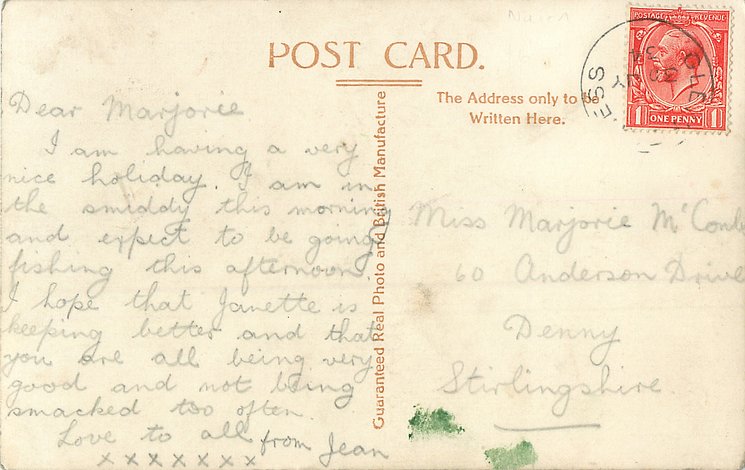 POST CARD.
Dear Marjorie
I am having a very
nice holiday. I am in
the smiddy this morning
and expect to be going
fishing this afternoon.
I hope that Janette is
keeping better and that
you are all being very
good and not being
smacked too often
Love to all from Jean
x x x x x x x
Guaranteed Real Photo and British Manufacture
The Address only to be
Written Here.
POSTAGE REVENUE
ONE PENNY
1 1
ESS
34
Miss Marjorie
60 Anderson Drive
Denny
Stirlingshire